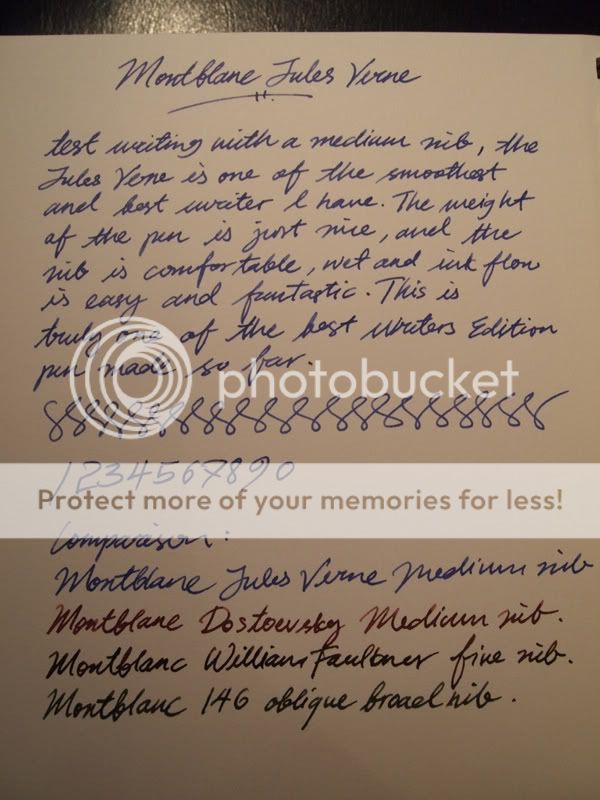 Montblanc Jules Verne
test writing with a medium nib, the
Jules Verne is one of the smoothest
and best writer I have. The weight
of the pen is just nice, and the
nib is comfortable, wet and ink flow
is easy and fantastic. This is
truly one of the best Writers Edition
pen made so far.
photobucket
888888888888888888888
1234567890
Protect more of your memories for less!
Comparison:
Montblanc Jules Verne medium nib
Montblanc Dostoevsky Medium nib.
Montblanc William Faulkner fine nib.
Montblanc 146 oblique broad nib.